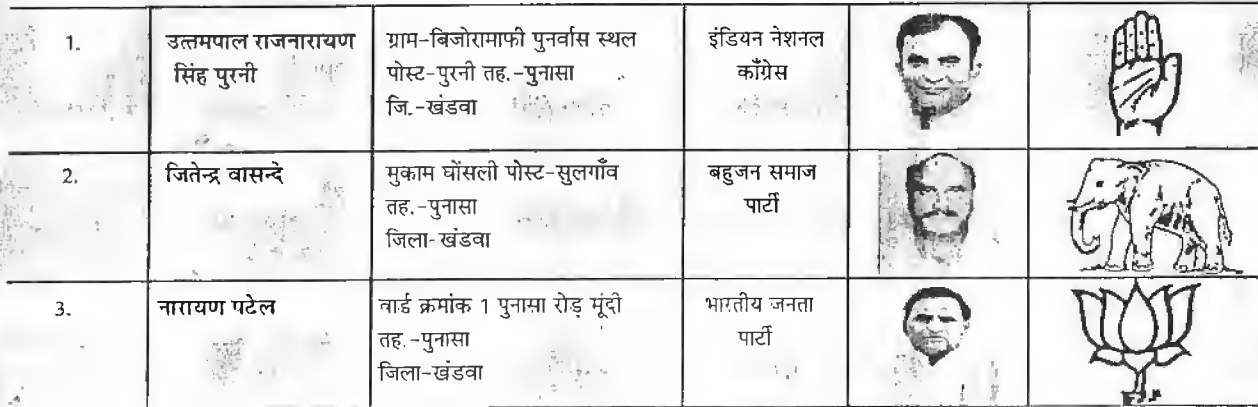 1.
उत्तमपाल राजनारायण
सिंह पुरनी
ग्राम-बिजोरामाफी पुनर्वास स्थल
पोस्ट-पुरनी तह.-पुनासा
जि.-खंडवा
इंडियन नेशनल
काँग्रेस
2.
जितेन्द्र वासन्दे
मुकाम घोंसली पोस्ट-सुलगाँव
तह.-पुनासा
जिला-खंडवा
बहुजन समाज
पार्टी
3.
नारायण पटेल
वार्ड क्रमांक 1 पुनासा रोड़ मूंदी
तह.-पुनासा
जिला-खंडवा
भारतीय जनता
पार्टी